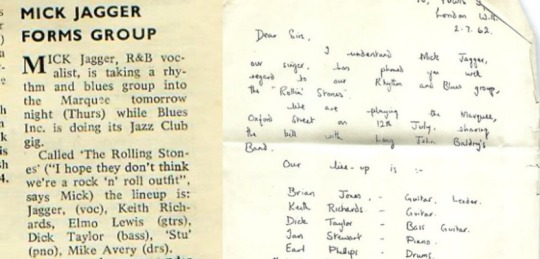 MICK JAGGER
FORMS GROUP
MICK Jagger, R&B voc-
alist, is taking a rhy-
thm and blues group into
the Marquee tomorrow
night (Thurs) while Blues
Inc. is doing its Jazz Club
gig.
Called 'The Rolling Ston-
es' ("I hope they don't think
we're a rock 'n' roll outfit",
says Mick) the lineup is:
Jagger, (voc), Keith Rich-
ards, Elmo Lewis (gtrs),
Dick Taylor (bass), 'Stu'
(pno), Mike Avery (drs).
London W.
2-7. 62.
Dear Sir,
I understand Mick Jagger,
our singer, has phoned you with
regard to our Rhythm and Blues group,
the "Rollin' Stones"
We are playing the Marquee,
Oxford Street on 12th July, sharing
the bill with Long John Baldry's
Band.
Our line-up is :-
Brian Jones, - Guitar. Leader.
Keith Richards - Guitar.
Dick Taylor - Bass Guitar.
Ian Stewart - Piano.
Earl Phillips - Drums.